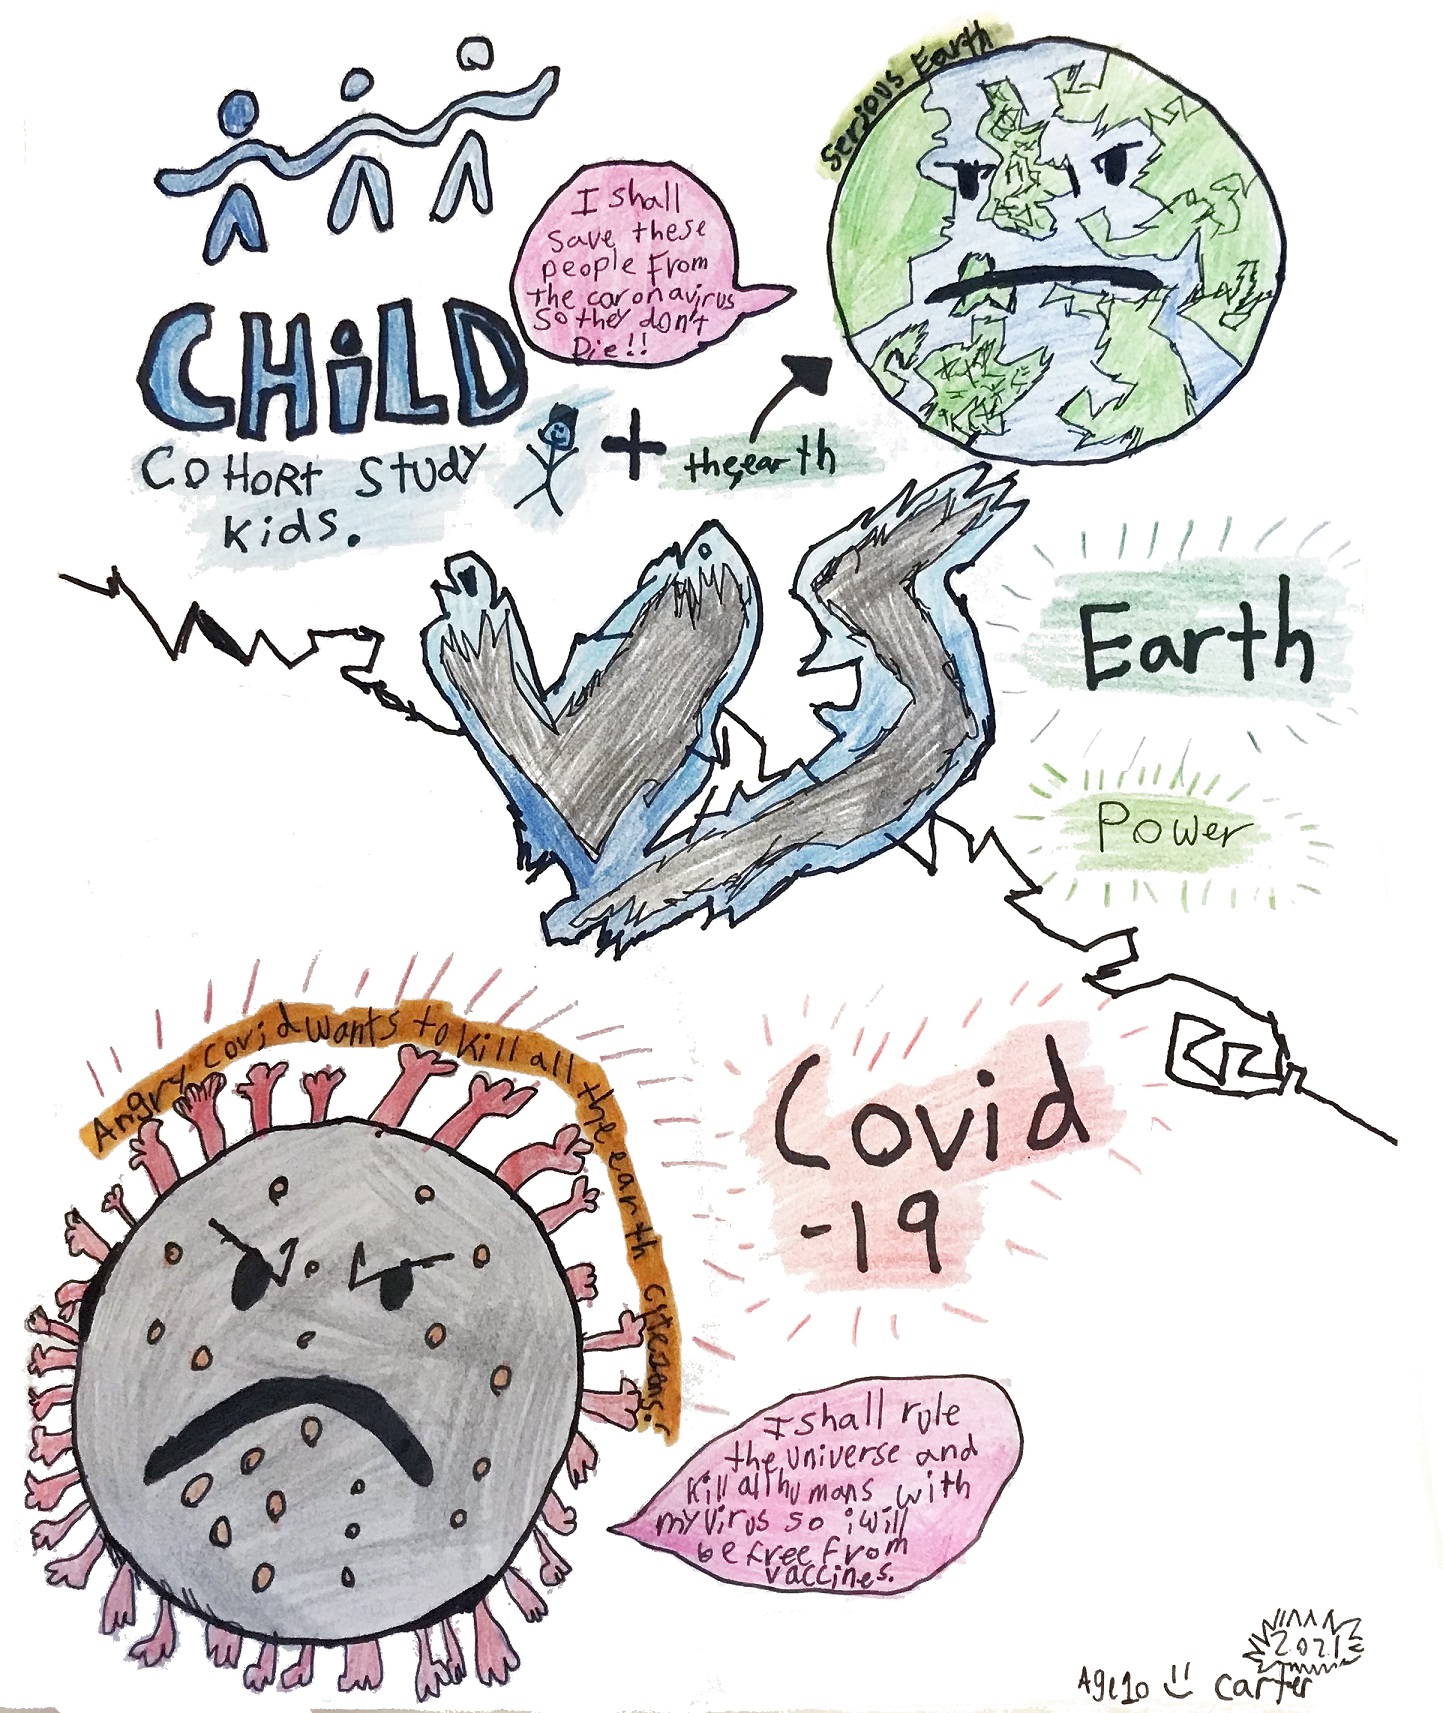 Serious Earth
I shall
save these
people From
the caronavirus
so they don't
Die!!
CHiLD
COHORt StUDY
Kids.
+
the earth
VS
Earth
Power
Angry covid wants to kill all the earth cytezans!
Covid
-19
I shall rule
the universe and
kill all humans with
my virus so i will
be free from
vaccines.
2021
Age 10
carter